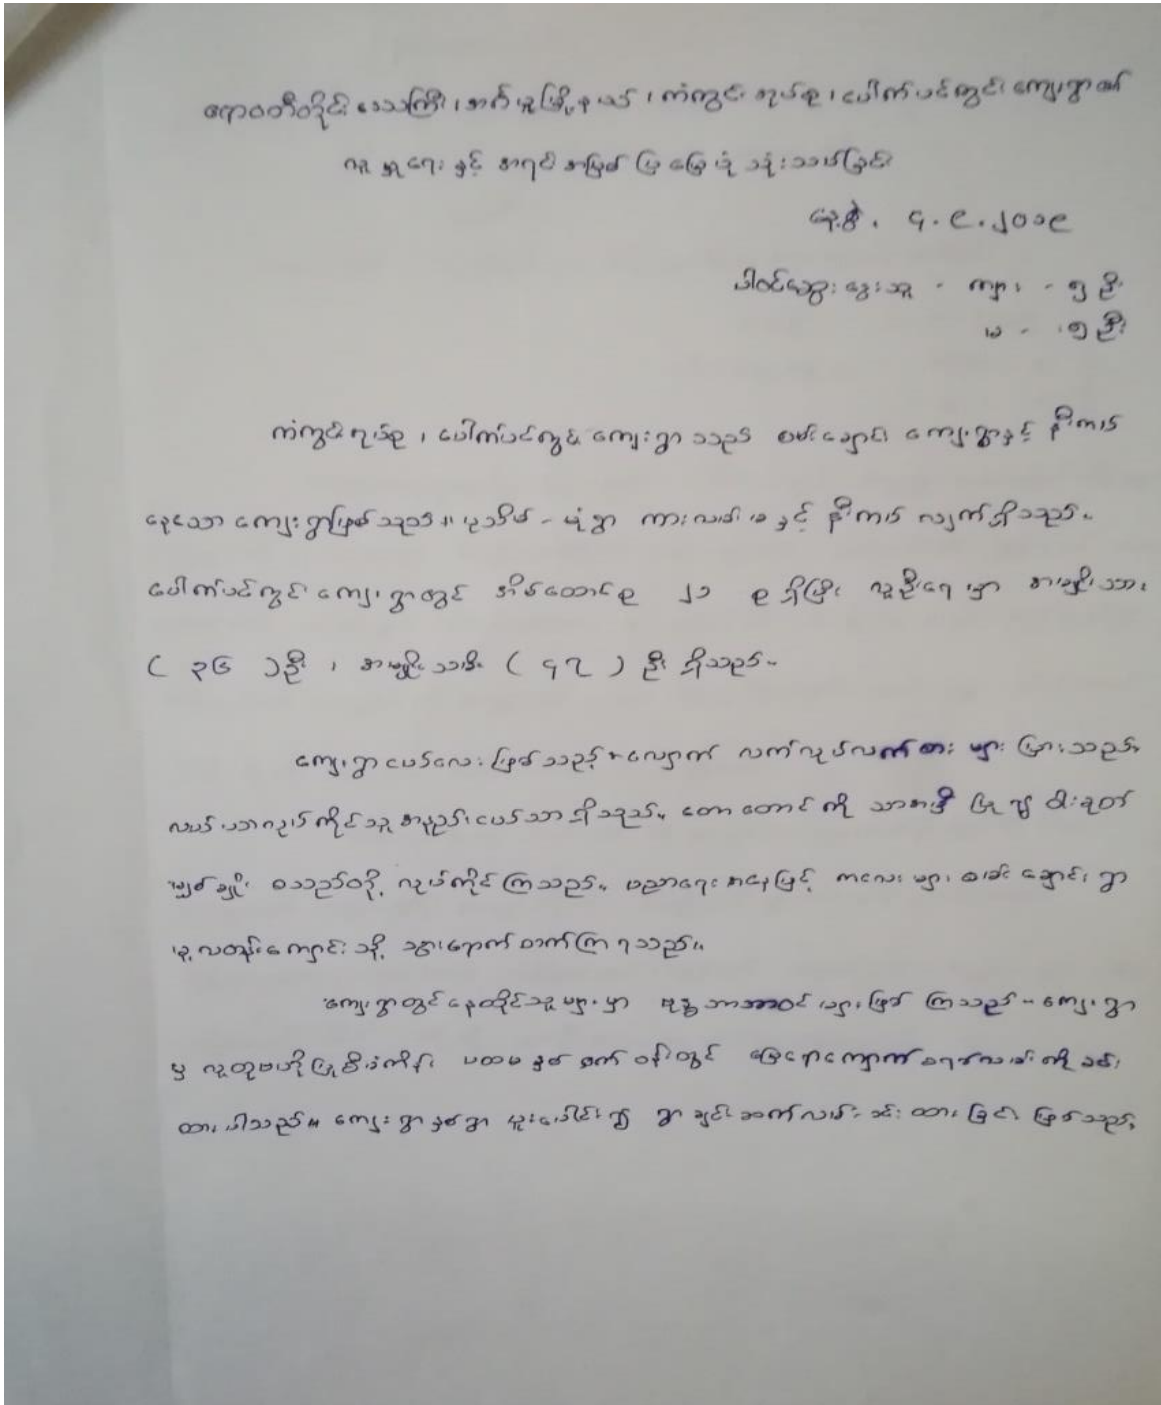 ဧရာဝတီတိုင်းဒေသကြီး၊ ငါးသိုင်းချောင်းမြို့နယ်၊ ကံကွင်းအုပ်စု၊ ပေါက်ပင်ကွင်းကျေးရွာ၏
လူမှုရေးနှင့် အရင်းအမြစ်ပြမြေပုံ သုံးသပ်ခြင်း
နေ့စွဲ . ၄.၉.၂၀၁၉
ပါဝင်ဆွေးနွေးသူ - ကျား - ၅ ဦး
မ - ၅ ဦး
ကံကွင်းအုပ်စု ၊ ပေါက်ပင်ကွင်း ကျေးရွာသည် စခန်းချောင်း ကျေးရွာနှင့် နီးကပ်
နေသော ကျေးရွာဖြစ်သည်။ ပုသိမ် - မုံရွာ ကားလမ်းမနှင့် နီးကပ် လျက်ရှိသည်။
ပေါက်ပင်ကွင်း ကျေးရွာတွင် အိမ်ထောင်စု ၂၁ စု ရှိပြီး လူဦးရေမှာ အမျိုးသား
( ၃၆ )ဦး ၊ အမျိုးသမီး ( ၄၇ ) ဦး ရှိသည်။
ကျေးရွာငယ်လေးဖြစ်သည့်အလျောက် လက်လုပ်လက်စား များပြားသည်။
လယ်ယာလုပ်ကိုင်သူ အနည်းငယ်သာ ရှိသည်။ တောတောင်ကို သာအမှီပြု၍ ဝါးခုတ်
မျှစ်ချိုး စသည်တို့ လုပ်ကိုင်ကြသည်။ ပညာရေးအနေဖြင့် ကလေးများ စခန်းချောင်းရွာ
မူလတန်းကျောင်းသို့ သွားရောက်တက်ကြရသည်။
ကျေးရွာတွင်နေထိုင်သူများမှာ ဗုဒ္ဓဘာသာဝင်များ ဖြစ်ကြသည်။ ကျေးရွာ
မှ လူထုဗဟိုပြုစီမံကိန်း ပထမနှစ်စက်ဝန်းတွင် မြေနီကျောက်ခင်းလမ်းကို ခင်း
ထားပါသည်။ ကျေးရွာနှစ်ရွာ ပူးပေါင်း၍ ရွာချင်းဆက်လမ်း ခင်းထားခြင်း ဖြစ်သည်။